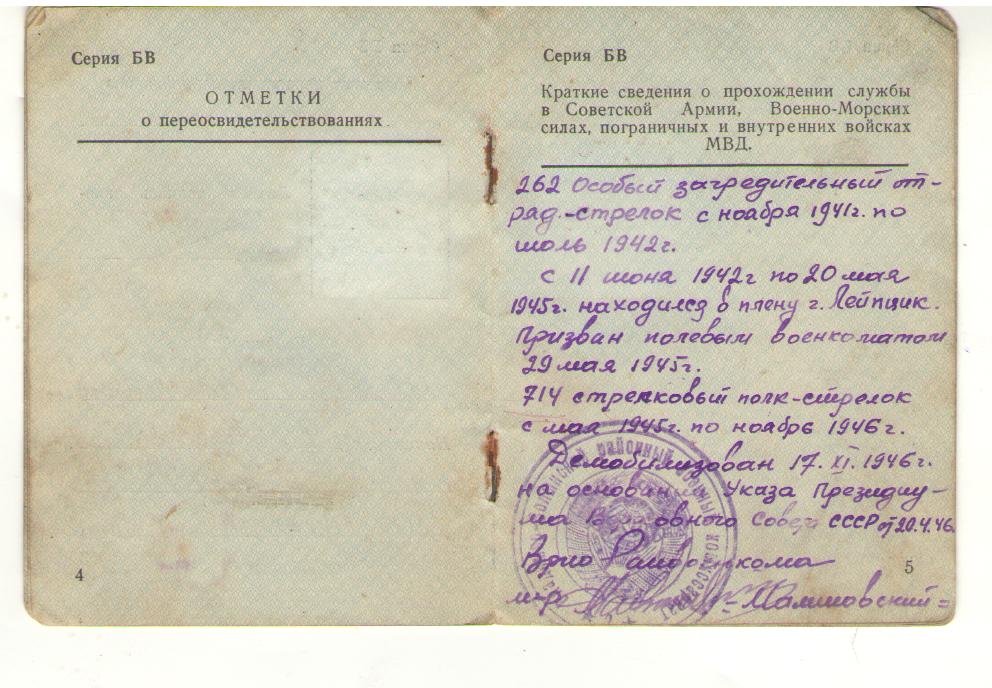 Серия БВ
ОТМЕТКИ
о переосвидетельствованиях.
4
Серия БВ
Краткие сведения о прохождении службы
в Советской Армии, Военно-Морских
силах, пограничных и внутренних войсках
МВД.
262 Особый заградительный от-
ряд-стрелок с ноября 1941г. по
июль 1942г.
С 11 июня 1942г по 20 мая
1945г. находился в плену г. Лейпциг.
Призван полевым военкоматом
29 мая 1945г.
714 стрелковый полк-стрелок
с мая 1945г. по ноябрь 1946г.
Демобилизован 17. XI. 1946г.
на основании Указа Президиу-
ма Верховного Совета СССР от 20.4.46
Врио Райвоенкома
м-р -Малиновский=
районный военный комиссариат
5